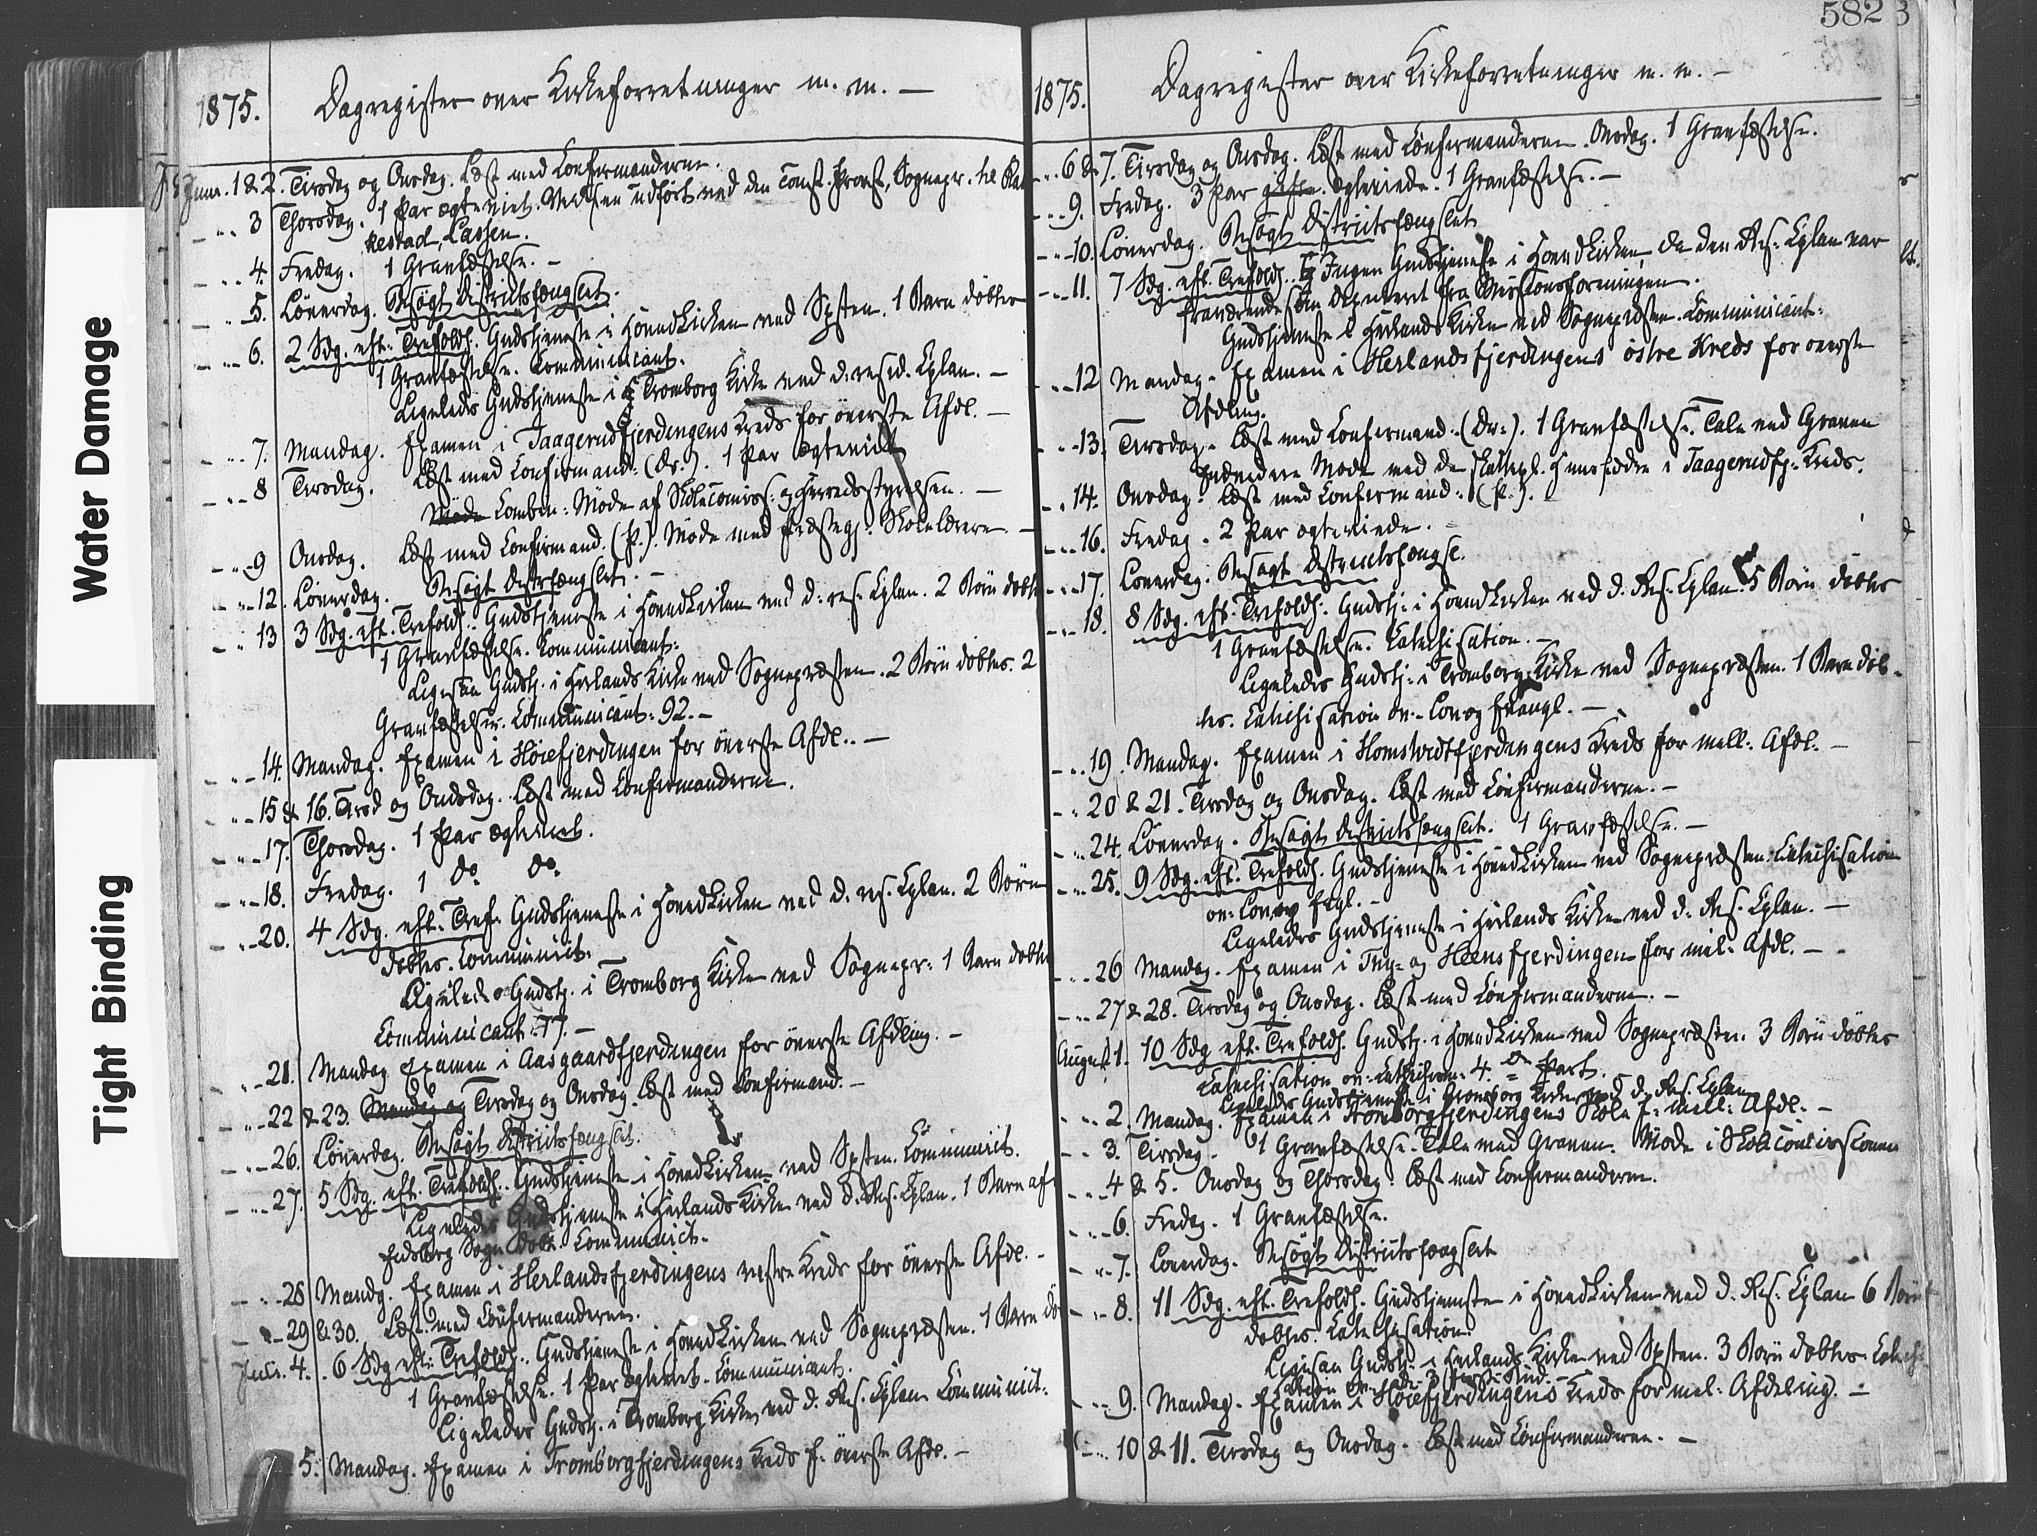 Water Damage
Tight Binding
1875. Dagregister over Kirkeforretninger m. m. —
Juni. 1 & 2. Tirsdag og Onsdag. Læst med Confirmanderne.
3 Thorsdag. 1 Par ægteviet. udført ved den Const. Provst, Sognepr. til
Lassen.
4. Fredag. 1 Gravfæstelse. —
5. Löverdag. Besögt Districtsfængslet.
6. 2 Sdg. eft. Trefoldh. Gudstjeneste i Hovedkirken ved Spsten. 1 Barn döbtes
1 Gravfæstelse. Communicant.
Ligeledes Gudstjeneste i Tromborg Kirke ved d. resid. Cplan. —
7. Mandag. Examen i Taagerudfjerdingens Kreds for överste Afdl. —
8 Tirsdag. Læst med Confirmand: (Dr.). 1 Par ægteviet
Combin: Möde af Skolecomiss: og Herredsstyrelsen. —
9 Onsdag. Læst med Confirmand. (P.). Möde med Præstegj. Skolelærere. —
12. Löverdag. Besögt Distrfængslet. —
13 3 Sdg. eft. Trefoldh. Gudstjeneste i Hovedkirken ved d. res. Cplan. 2 Börn döbtes
1 Gravfæstelse. Communicant.
Ligesaa Gudstj. i Herlands Kirke ved Sognepræsten. 2 Börn döbtes. 2
Gravfæstelser. Communicant: 92. —
14. Mandag. Examen i Höiefjerdingen for överste Afdl.. —
15 & 16. Tirsd og Onsdag. Læst med Confirmanderne.
17. Thorsdag. 1 Par ægteviet.
18. Fredag. 1 do do.
20. 4 Sdg. eft. Tref. Gudstjeneste i Hovedkirken ved d. res. Cplan. 2 Börn
döbtes. Communict.
Ligeledes Gudstj. i Tromborg Kirke ved Sognepr: 1 Barn döbtes
Communicant: 77. —
21. Mandag Examen i Aasgaardfjerdingen for överste Afdling. —
22 & 23. Mandag og Tirsdag og Onsdag. Læst med Confirmand. —
26. Löverdag. Besögt Districtsfængslet.
27. 5 Sdg. eft. Trefoldh. Gudstjeneste i Hovedkirken ved Spsten. Communict.
Ligeledes Gudstjeneste i Herlands Kirke ved d. Res. Cplan. 1 Barn af
Eidsberg Sogn döbt. Communict.
28 Mandg. Examen i Herlandsfjerdingens vestre Kreds for överste Afdl. —
29 & 30. Læst med Confirmanderne.
Juli. 4. 6 Sdg. eft. Trefoldh. Gudstjeneste i Hovedkirken ved Sognepræsten. 1 Barn
1 Gravfæstelse. 1 Par ægteviet. Communicant.
Ligeledes Gudstj. i Tromborg Kirke ved d. Res. Cplan Communict.
5. Mandag. Examen i Trombergfjerdingens Kreds f. överste Afdl. —
582
1875. Dagregister over Kirkeforretninger m. m. —
6 & 7. Tirsdag og Onsdag. Læst med Confirmanderne. Onsdag. 1 Gravfæstelse.
9. Fredag. 3 Par ægteviede. 1 Gravfæstelse. —
10. Löverdag. Besögt Districtsfængslet
11. 7 Sdg. eft. Trefoldh. Ingen Gudstjeneste i Hovedkirken, da den Res. Cplan var
fraværende som Deputeret fra Missionsforeningen.
Gudstjeneste i Herlands Kirke ved Sognepræsten. Communicant.
12 Mandag. Examen i Herlandsfjerdingens östre Kreds for överste
Afdling.
13. Tirsdag. Læst med Confirmand. (Dr.). 1 Gravfæstelse. Tale ved Graven
Möde med de i Taagerudfj. Kreds.
14. Onsdag. Læst med Confirmand: (P.).
16. Fredag. 2 Par ægteviede.
17. Löverdag. Besögt Districtsfængsl.
18. 8 Sdg. eft. Trefoldh. Gudstj: i Hovedkirken ved d. Res. Cplan. 5 Börn döbtes
1 Gravfæstelse. Catechisation. —
Ligeledes Gudstj: i Tromborg Kirke ved Sognepræsten. 1 Barn döb-
tes. Catechisation ov. Lov og Evangl. —
19. Mandag. Examen i Homstvedtfjerdingens Kreds for mell. Afdl. —
20 & 21. Tirsdag og Onsdag. Læst med Confirmanderne. —
24. Löverdag. Besögt Districtsfængslet. 1 Gravfæstelse. —
25. 9 Sdg. eft. Trefoldh. Gudstjeneste i Hovedkirken ved Sognepræsten. Catechisation
ov. Lov og Evgl. —
Ligeledes Gudstjeneste i Herlands Kirke ved d. Res. Cplan. —
26 Mandag. Examen i Ting- og Heensfjerdingen for mel. Afdl. —
27 & 28. Tirsdag og Onsdag. Læst med Confirmanderne. —
August 1. 10 Sdg eft. Trefoldh. Gudstj. i Hovedkirken ved Sognepræsten. 3 Börn döbtes
Catechisation ov. Catechism: 4. de Part.
Ligeleds Gudstjeneste i Tromborg Kirke ved d. Res. Cplan
2. Mandag. Examen i Trombergfjerdingens Skole f. mell. Afdl. —
3. Tirsdag. 1 Gravfæstelse. Tale ved Graven. Möde i Skolecomissionen
4 & 5. Onsdag og Thorsdag. Læst med Confirmanderne.
6. Fredag. 1 Gravfæstelse.
7. Löverdag. Besögt Districtsfængslet
8. 11 Sdg. eft. Trefoldh. Gudstjeneste i Hovedkirken ved d. Res. Cplan 6 Börn
döbtes. Catechisation.
Ligesaa Gudstj. i Herlands Kirke ved Spsten. 3 Börn döbtes.
9. Mandag. Examen i Höiefjerdingens Kreds for mel. Afdeling. —
10 & 11. Tirsdag og Onsdag. Læst med Confirmanderne. —